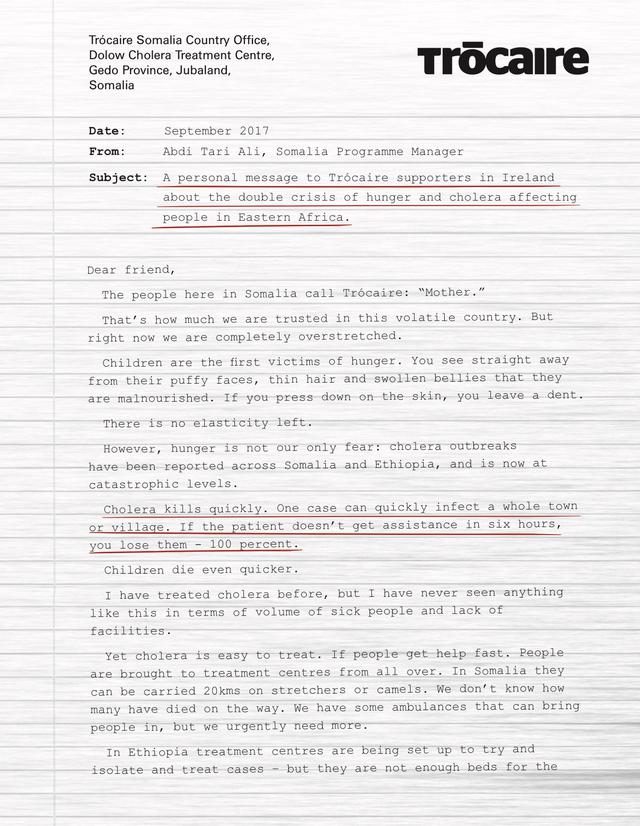 Trócaire Somalia Country Office,
Dolow Cholera Treatment Centre,
Gedo Province, Jubaland,
Somalia
Trōcaire
Date: September 2017
From: Abdi Tari Ali, Somalia Programme Manager
Subject: A personal message to Trócaire supporters in Ireland
about the double crisis of hunger and cholera affecting
people in Eastern Africa.
Dear friend,
The people here in Somalia call Trócaire: “Mother.”
That’s how much we are trusted in this volatile country. But
right now we are completely overstretched.
Children are the first victims of hunger. You see straight away
from their puffy faces, thin hair and swollen bellies that they
are malnourished. If you press down on the skin, you leave a dent.
There is no elasticity left.
However, hunger is not our only fear: cholera outbreaks
have been reported across Somalia and Ethiopia, and is now at
catastrophic levels.
Cholera kills quickly. One case can quickly infect a whole town
or village. If the patient doesn’t get assistance in six hours,
you lose them – 100 percent.
Children die even quicker.
I have treated cholera before, but I have never seen anything
like this in terms of volume of sick people and lack of
facilities.
Yet cholera is easy to treat. If people get help fast. People
are brought to treatment centres from all over. In Somalia they
can be carried 20kms on stretchers or camels. We don’t know how
many have died on the way. We have some ambulances that can bring
people in, but we urgently need more.
In Ethiopia treatment centres are being set up to try and
isolate and treat cases – but they are not enough beds for the